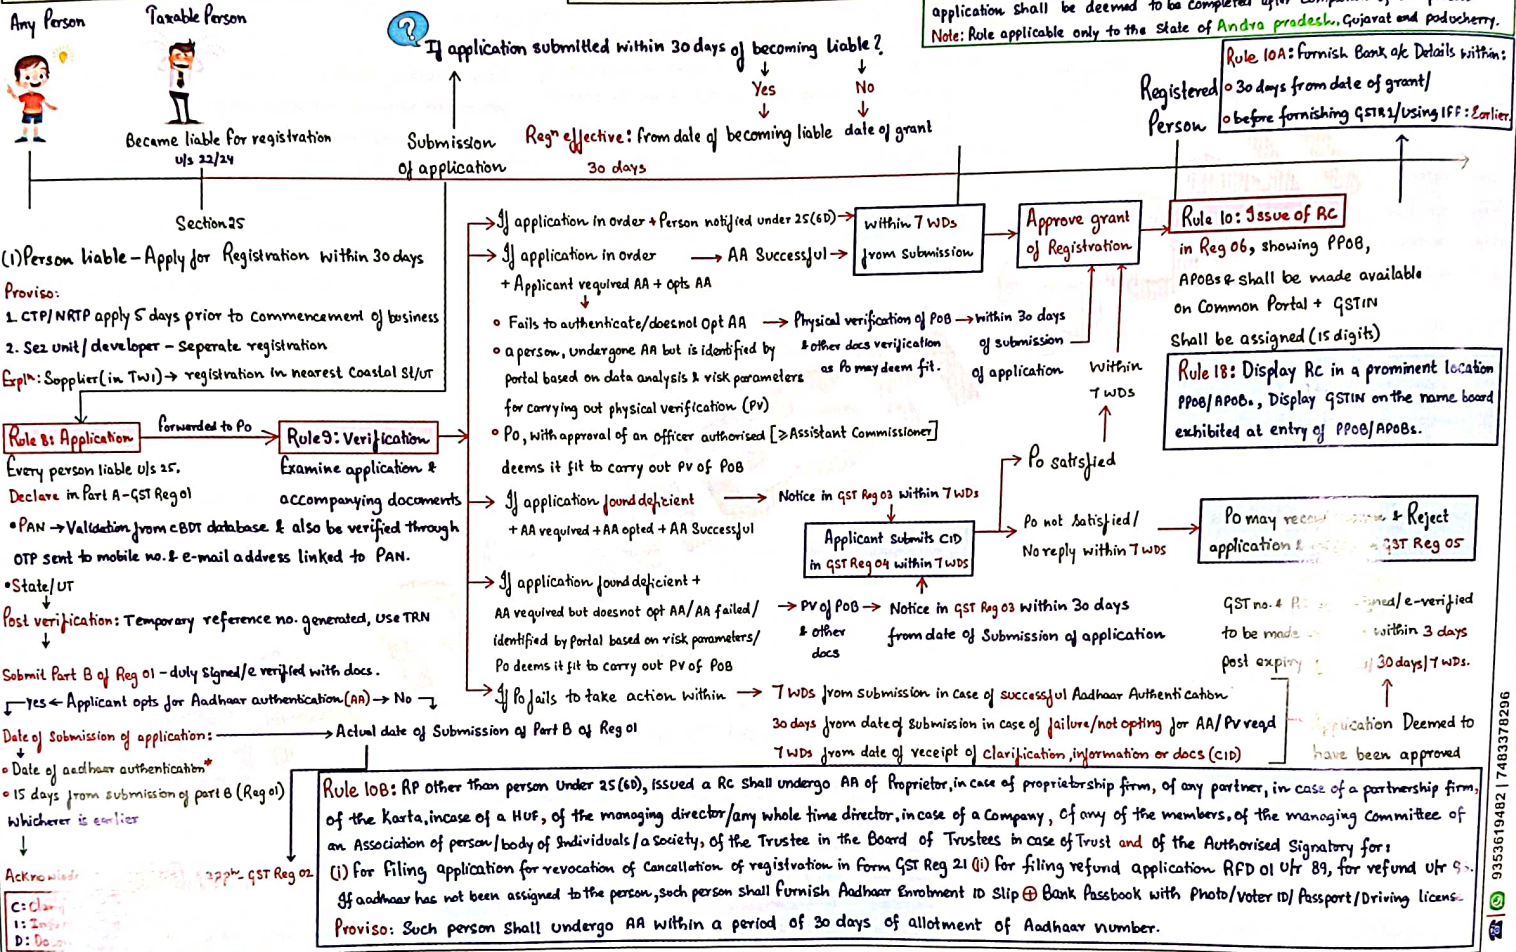 Any Person
Taxable Person
Became liable for registration
u/s 22/24
Submission
of application
If application submitted within 30 days of becoming liable?
Yes
No
Regn effective: from date of becoming liable
date of grant
30 days
application shall be deemed to be completed after
Note: Rule applicable only to the State of Andra pradesh, Gujarat and puducherry.
Registered
Person
Rule 10A: Furnish Bank a/c Details within:
30 days from date of grant/
before furnishing GSTR1/using IFF: Earlier
Section 25
(1) Person liable - Apply for Registration within 30 days
Proviso:
1. CTP/NRTP apply 5 days prior to commencement of business
2. Sez unit/developer - Seperate registration
Expln: Supplier (in TWI) → registration in nearest Coastal St/UT
Rule 8: Application
forwarded to PO
Rule 9: Verification
Every person liable u/s 25,
Declare in Part A-GST Reg 01
• PAN → Validation from CBDT database & also be verified through
OTP sent to mobile no. & e-mail address linked to PAN.
• State/UT
Post verification: Temporary reference no. generated, use TRN
Submit Part B of Reg 01 - duly signed/e verified with docs.
Yes ← Applicant opts for Aadhaar authentication (AA) → No
Date of submission of application: → Actual date of Submission of Part B of Reg 01
Date of aadhaar authentication*
15 days from submission of part B (Reg 01)
whicherer is earlier
GST Reg 02
C:
I:
D:
Examine application &
accompanying documents
If application in order + Person notified under 25(6D)
If application in order → AA Successful
+ Applicant required AA + opts AA
within 7 WDs
from submission
Approve grant
of Registration
Fails to authenticate/doesnot opt AA
→ Physical verification of POB → within 30 days
& other docs verification
of submission
as PO may deem fit.
of application
a person, undergone AA but is identified by
portal based on data analysis & risk parameters
for carrying out physical verification (PV)
PO, with approval of an officer authorised [≥Assistant Commissioner]
deems it fit to carry out PV of POB
within
7 WDs
If application found deficient → Notice in GST Reg 03 within 7 WDs
+ AA required + AA opted + AA Successful
Applicant Submits CID
in GST Reg 04 within 7 WDs
PO satisfied
PO not satisfied/
No reply within 7 WDs
PO may & Reject
application & GST Reg 05
If application found deficient +
AA required but doesnot opt AA/AA failed/
identified by Portal based on risk parameters/
PO deems it fit to carry out PV of POB
→ PV of POB → Notice in GST Reg 03 within 30 days
& other
docs
from date of Submission of application
If PO fails to take action within → 7 WDs from submission in case of successful Aadhaar Authentication
30 days from date of submission in case of failure/not opting for AA/PV reqd
7 WDs from date of receipt of clarification, information or docs (CID)
Rule 10: Issue of RC
in Reg 06, showing PPOB,
APOBs & shall be made available
on Common Portal + GSTIN
Shall be assigned (15 digits)
Rule 18: Display RC in a prominent location
PPOB/APOBs, Display GSTIN on the name board
exhibited at entry of PPOB/APOBs.
GST no. & /e-verified
to be made within 3 days
post expiry 30 days/7 WDs.
Application Deemed to
have been approved
Rule 10B: RP other than person under 25(6D), issued a RC shall undergo AA of Proprietor, in case of proprietorship firm, of any partner, in case of a partnership firm,
of the Karta, incase of a HUF, of the managing director/any whole time director, in case of a Company, of any of the members, of the managing Committee of
an Association of person/body of Individuals/a Society, of the Trustee in the Board of Trustees in case of Trust and of the Authorised Signatory for:
(i) for Filing application for revocation of Cancellation of registration in form GST Reg 21 (ii) for filing refund application RFD 01 u/r 89, for refund u/r
If aadhaar has not been assigned to the person, such person shall furnish Aadhaar Enrolment ID Slip ⊕ Bank Passbook with Photo/Voter ID/Passport/Driving
Proviso: Such person shall undergo AA within a period of 30 days of allotment of Aadhaar number.
9353619482 | 7483378296